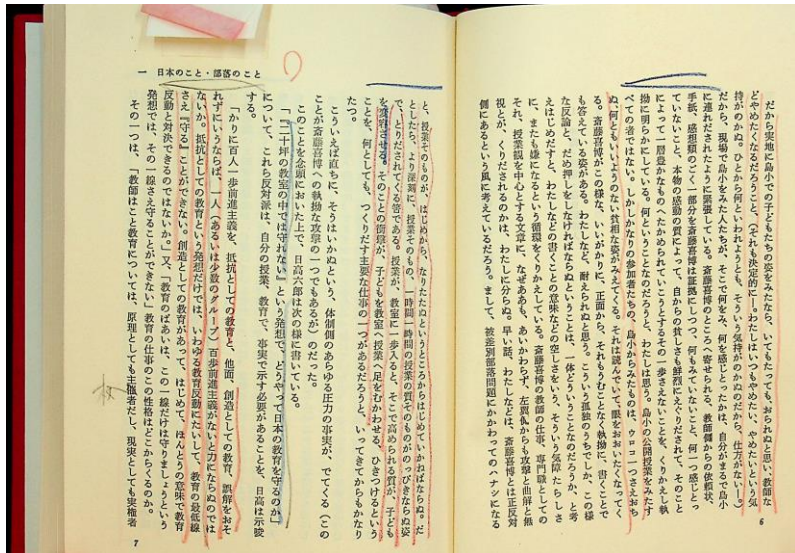 だから実地に島小での子どもたちの姿をみたなら、いてもたっても、おられぬと思い、教師な
どやめたくなるだろうこと、(それも決定的に―。わたしはいつもやめたい、やめたいという気
持がのかぬ。ひとから何といわれようとも、そういう気持がのかぬのだから、仕方がない―。)
だから、現場で島小をみた人たちが、そこで何をみ、何を感じとったかは、自分がまるで島小
に連れだされたように緊張している。斎藤喜博のところへ寄せられる、教師側からの依頼状、
手紙、感想類のごく一部分を斎藤喜博は証拠にしつつ、何もみていないこと、何一つ感じとっ
ていないこと、本物の感動の質によって、自からの貧しさも鮮烈にえぐりだされて、そのこと
によって一層豊かなものへたかめられていこうとするその一歩さえないことを、くりかえし執
拗に明らかにしている。何ということなのだろうと、わたしは思う。島小の公開授業をみたす
べての者ではない。しかしかなりの参加者たちの、島小からみたものは、ウロコ一つさえおち
ぬ、何ともいいようのない貧相な姿がみえてくる。それは読んでいて眼をおおいたくなってく
る。斎藤喜博がこの様な、いいがかりに、正面から、それもうむことなく執拗に、書くことで
も答えている姿がある。わたしなど、耐えられぬと思う。こういう孤独のうちでしか、この様
な反論と、だめ押しをしなければならぬということは、一体どういうことなのだろうか、と考
えはじめだすと、わたしなどの書くことの意味などの空しさをいう、そういう気障たらしさ
に、またも嫌になるという循環をくりかえしている。斎藤喜博の教師の仕事、専門職としての
それ、授業観を中心とする文章に、なぜああも、あいかわらず、左翼仇からも攻撃と曲解と無
視とが、くりだされるのかは、わたしに分らぬ。早い話、わたしなどは、斎藤喜博とは正反対
側にあるという風に考えているだろう。まして、被差別部落問題にかかわってのハナシになる
6
一 日本のこと・部落のこと
と、授業そのものが、はじめから、なりたたぬというところからはじめていかねばならぬ。だ
としたら、より深刻に、授業そのもの、一時間一時間の授業の質そのものがのっぴきならぬ姿
で、とりだされてくる筈である。授業が、教室に一歩入ると、そこで高められる質が、子ども
を変容させる。そのことの衝撃が、子どもを教室へ授業へ足をむかわせる、ひきつけるという
ことを、何としても、つくりだす主要な仕事の一つがあるだろうと、いってきてからもかなり
たつ。
こういえば直ちに、そうはいかぬという、体制側のあらゆる圧力の事実が、でてくる(この
ことが斎藤喜博への執拗な攻撃の一つでもあるが)のだった。
このことを念頭においた上で、日高六郎は次の様に書いている。
「『二十坪の教室の中では守れない』という発想で、どうやって日本の教育を守るのか」
について、これら反対派は、自分の授業、教育で、事実で示す必要があることを、日高は示唆
する。
「かりに百人一歩前進主義を、抵抗としての教育と、他面、創造としての教育、誤解をおそ
れずにいうならば、一人(あるいは少数のグループ)百歩前進主義がないと力にならぬのでは
ないか。抵抗としての教育という発想だけでは、いわゆる教育反動にたいして、教育の最低線
さえ『守る』ことができない。創造としての教育があって、はじめて、ほんとうの意味で教育
反動と対決できるのではないか。」又、「教育のばあいは、この一線だけは守りましょうという
発想では、その一線さえ守ることができない」教育の仕事のこの性格はどこからくるのか。
その一つは、「教師はこと教育については、原理としても主権者だし、現実としても実権者
枚
7